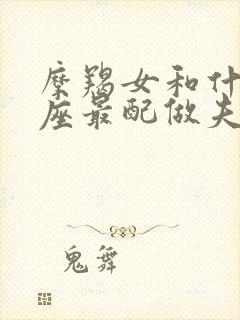 摩羯女和什
座最配做夫
鬼舞